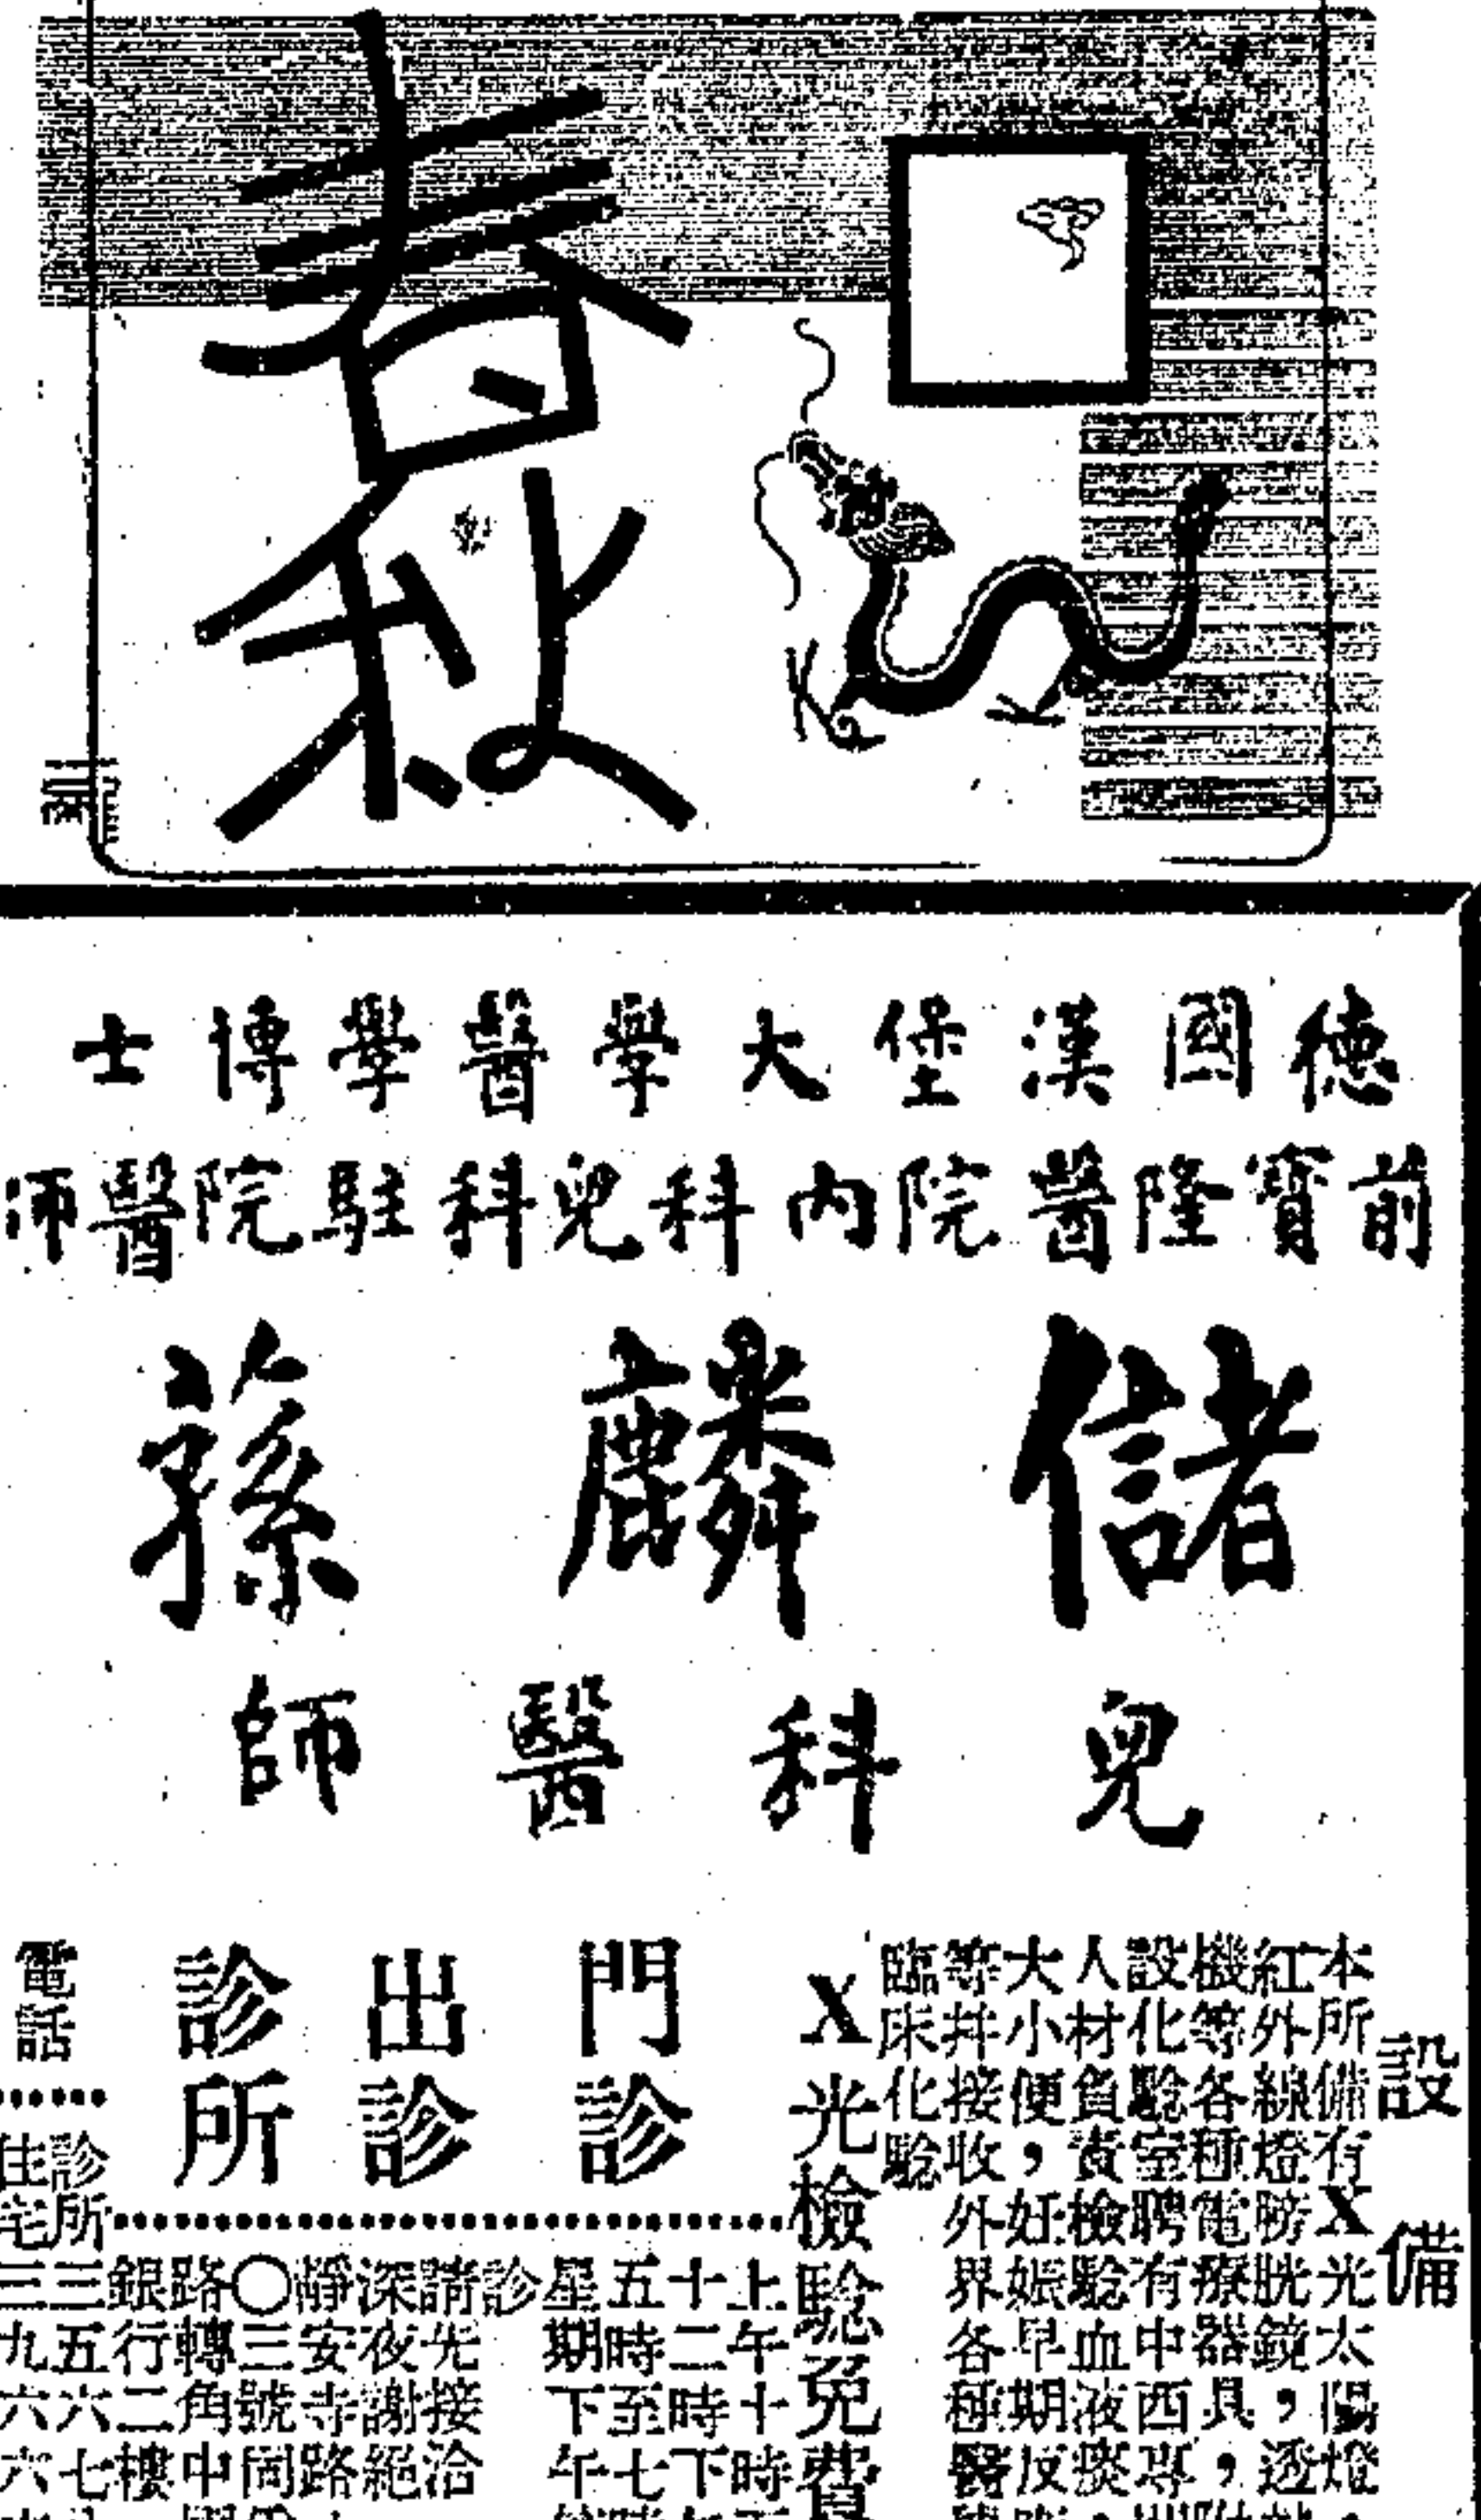 春秋
德國漢堡大學醫學博士
前寶隆醫院內科兒科駐院醫師
儲麟蓀
兒科醫師
設備
本所備有X光太陽燈
紅外線燈膀胱鏡，透
機等各種電療器具，
設化驗室聘有中西專
人材負責檢驗血液痰
大小便，妊娠早期反
等并接收外界各種醫
臨床化驗
X光檢驗免費
門診
上午十時
十二時下
五時至七
星期下午
出診
診
請先接洽
深夜謝絕
診所
靜安寺路
〇三號同
路轉角中
銀行二樓
電話
診所三五六七
住宅三九六六